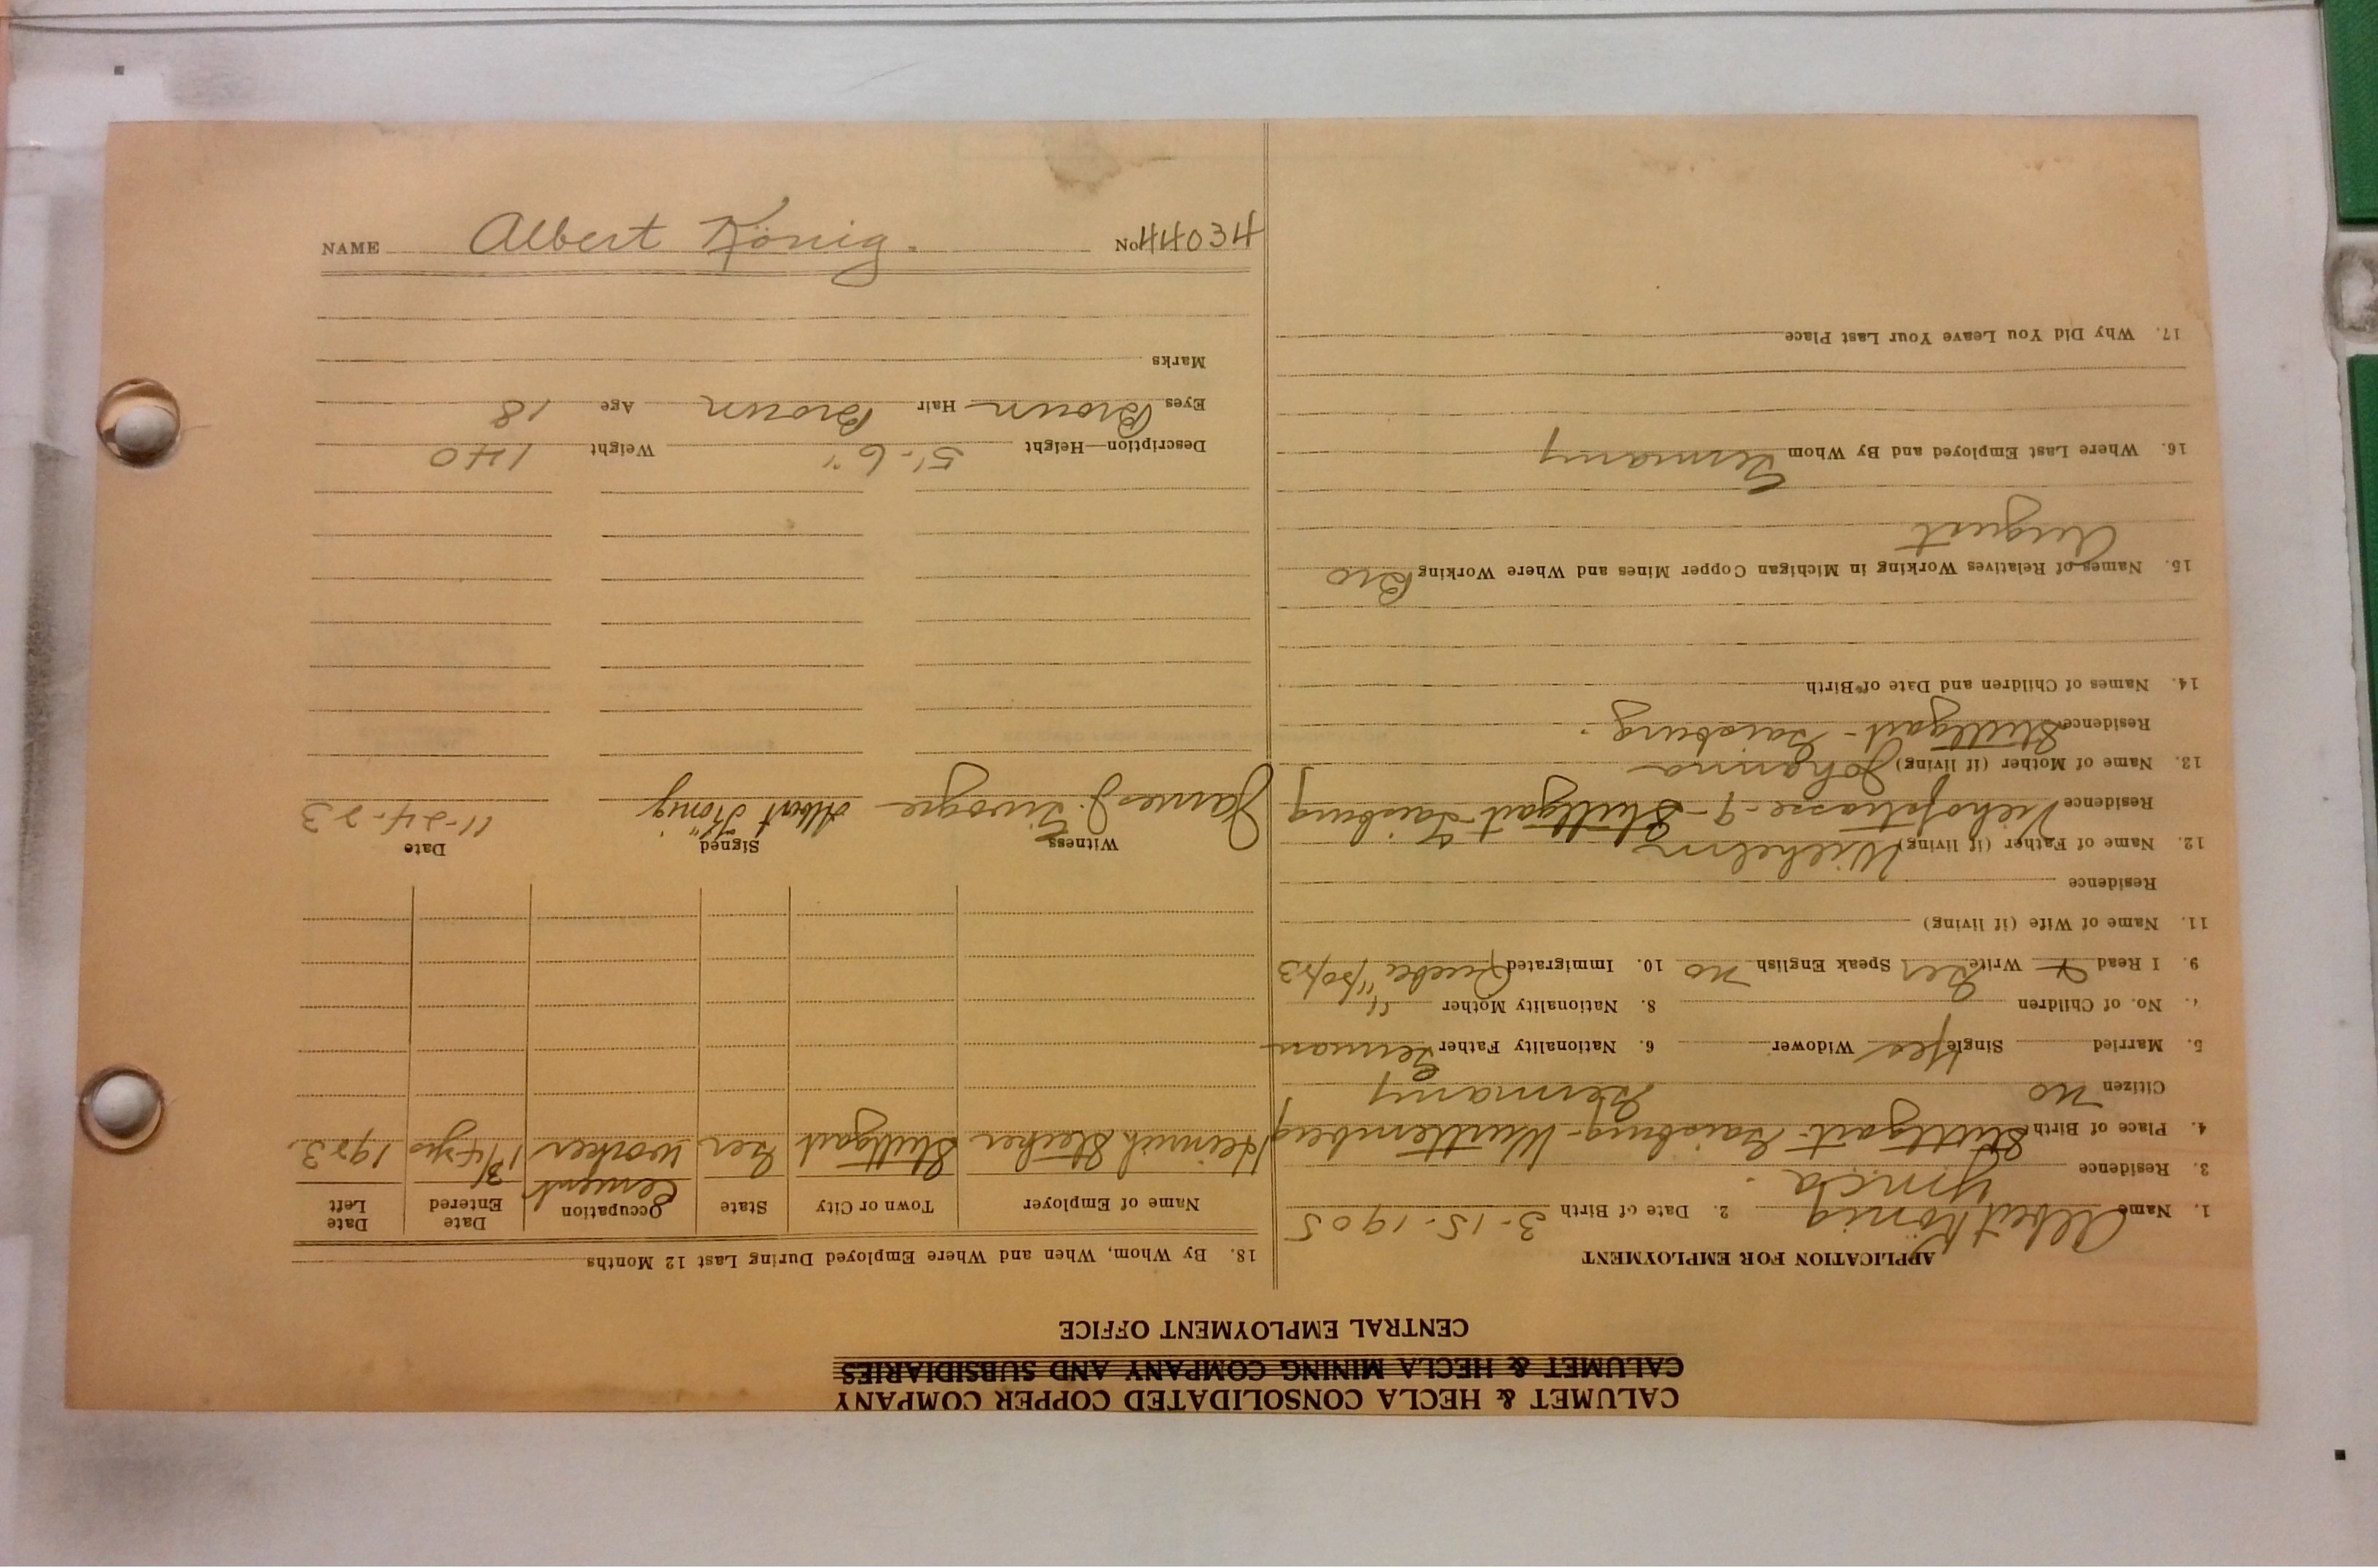 NAME Albert König. No 44034
CALUMET & HECLA CONSOLIDATED COPPER COMPANY
CALUMET & HECLA MINING COMPANY AND SUBSIDIARIES
CENTRAL EMPLOYMENT OFFICE
APPLICATION FOR EMPLOYMENT
1. Name Albert König 2. Date of Birth 3-15-1905
3. Residence
4. Place of Birth Stuttgart-Gaisburg-Wurttemberg
Citizen no Germany
5. Married Single Yes Widower 6. Nationality Father German
7. No. of Children 8. Nationality Mother "
9. I Read & Write Ger Speak English no 10. Immigrated
11. Name of Wife (if living)
Residence
12. Name of Father (if living) Wilhelm
Residence Viehofstrasse-9-Stuttgart-Gaisburg
13. Name of Mother (if living) Johanna
Residence Stuttgart-Gaisburg.
14. Names of Children and Date of Birth
15. Names of Relatives Working in Michigan Copper Mines and Where Working Bro
August
16. Where Last Employed and By Whom Germany
17. Why Did You Leave Your Last Place
18. By Whom, When and Where Employed During Last 12 Months
Name of Employer Town or City State Occupation Date Entered Date Left
Heinrich Stuttgart Ger Cement worker 1923.
Witness Signed Date
James J. Albert König 11-24-23
Description—Height 5'-6" Weight 140
Eyes Brown Hair Brown Age 18
Marks